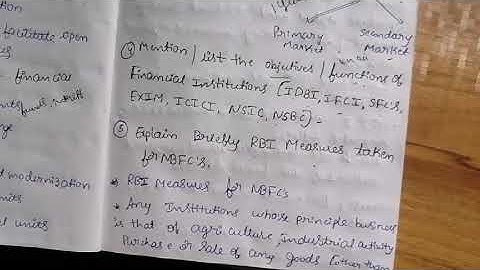 facilitate open
financial
modernization
units
units
Primary Market
Secondary Market
④ Mention / list the objectives / functions of
Financial Institutions [IDBI, IFCI, SFC's,
EXIM, ICICI, NSIC, NSBC] -
⑤ Explain Briefly RBI Measures taken
for NBFC's.
* RBI Measures for NBFC's
* Any Institutions whose principle business
is that of agriculture, industrial activity
Purchase or Sale of any goods (other than